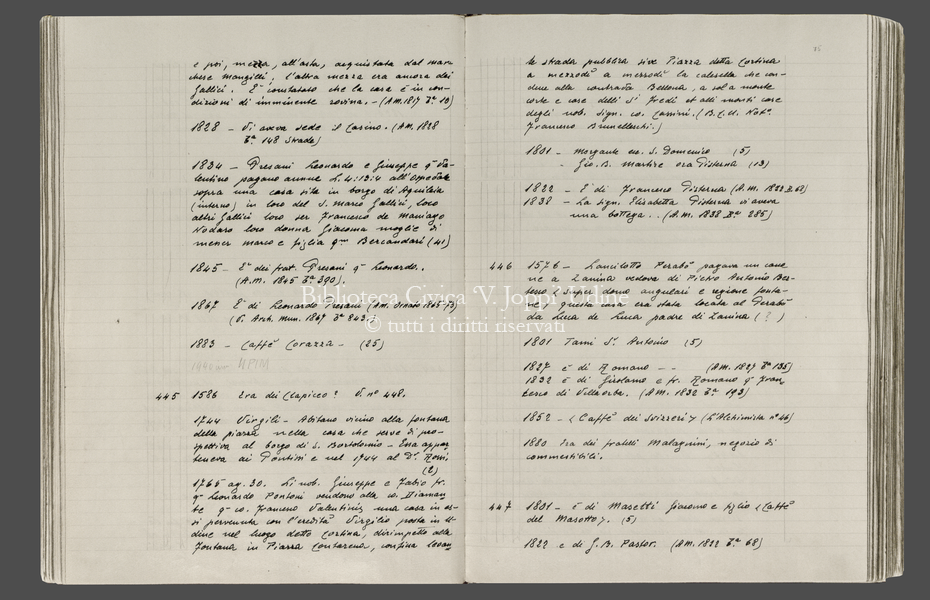 e poi, mezza, all'asta, acquistata dal mar-
chese Mangilli; l'altra mezza era ancora dei
Gallici. E' constatato che la casa è in con-
dizioni di imminente rovina. - (A.M. 1817 Bª 10)
1828 - Vi aveva sede il Casino. (A.M. 1828
Bª 148 Strade)
1834 - Presani Leonardo e Giuseppe qm Va-
lentino pagano annue L. 4:13:4 all'Ospedale
sopra una casa sita in borgo di Aquileia
(interno) in loco del S. Marco Gallici, loco
altri Gallici loco ser Francesco de Maniago
Nodaro loco donna Giacoma moglie di
messer Marco e figlia qm Bercandari (41)
1845 - E' dei frat. Presani qm Leonardo..
(A.M. 1845 Bª 390).
1867 E' di Leonardo Presani (Am. Ornato 1865-73)
(V. Arch. Mun. 1867 Bª 843.)
1883 - Caffè Corazza - (25)
445 1586 Era dei Clapiceo? V. nº 448.
1744 Virgili - Abitano vicino alla fontana
della piazza nella casa che serve di pro-
spettiva al borgo di S. Bortolomio - Essa appar
teneva ai Pontini e nel 1744 al Dr.
(2)
1765 ag. 30. Li nob. Giuseppe e Fabio fr.
qm Leonardo Pontoni vendono alla co. Diaman
te qm co. Francesco Valentinis una casa in es-
si pervenuta con l'eredità Virgilio posta in U-
dine nel luogo detto Cortina, dirimpetto alla
Fontana in Piazza Contarena, confina levan
la strada pubblica sive Piazza detta Cortina
a mezzodì a mezzodì la calesella che con-
duce alla contrada Bellona, a sol a monte
corte e case delli Sri Fredi et alli monti case
degli nob. sign. co. Cassini. (B.C.U. Notº
Francesco Brunelleschi.)
1801 - Morgante eu. S. Domenico (5)
- Gio. B. Martire ora Pisterna (13)
1822 - E' di Francesco Pisterna (A.M. 1822 B. 68)
1838 - La sign. Elisabetta Pisterna vi aveva
una bottega.. (A.M. 1838 Bª 285)
446 1576 - Lancilotto Perabò pagava un cano
ne a Zanina vedova di Pietro Antonio Ber-
terio (super domo angulari e regione fonta-
nes) questa casa era stata locata al Perabò
da Luca de Luca padre di Zanina (?)
1801 Tami Sr. Antonio (5)
1827 è di Romano - - (A.M. 1827 Bª 135)
1832 è di Girolamo e fr. Romano qm Fran
cesco di Villaorba. (A.M. 1832 Bª 193)
1852 - (Caffè dei Svizzeri) (L'Alchimista nº 46)
1880 Era dei fratelli Malagnini, negozio di
commestibili.
447 1801 - è di Masetti Giacomo e figlio (Caffè
del Masotto). (5)
1822 è di G.B. Pastor. (A.M. 1822 Bª 68)
Biblioteca Civica 'V. Joppi' Udine
© tutti i diritti riservati